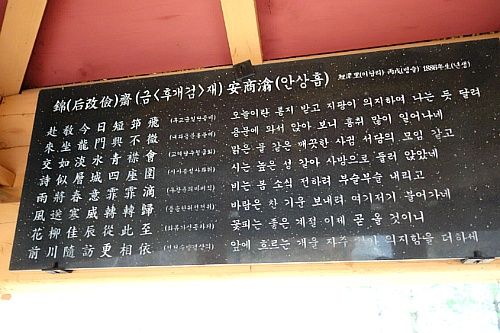 錦(后改儉)齋(금<후개검>재) 安商滄(안상흡) 丙戌(병술) 1886年生(년생)
赴敬今日短筇飛 오늘이란 통지 받고 지팡이 의지하여 나는 듯 달려
來坐龍門興不微 용문에 와서 앉아 보니 흥취 많이 일어나네
交如淡水青襟會 맑은 물 같은 깨끗한 사귐 서당의 모임 같고
詩似層城四座圍 시는 높은 성 같아 사방으로 둘러 앉았네
雨將春意霏霏滴 비는 봄 소식 전하려 부슬부슬 내리고
風送寒威轉轉歸 바람은 찬 기운 보내려 여기저기 불어가네
花柳佳辰從此至 꽃피는 좋은 계절 이제 곧 올 것이니
前川隨訪更相依 앞에 흐르는 개울 자주 의지함을 더하세